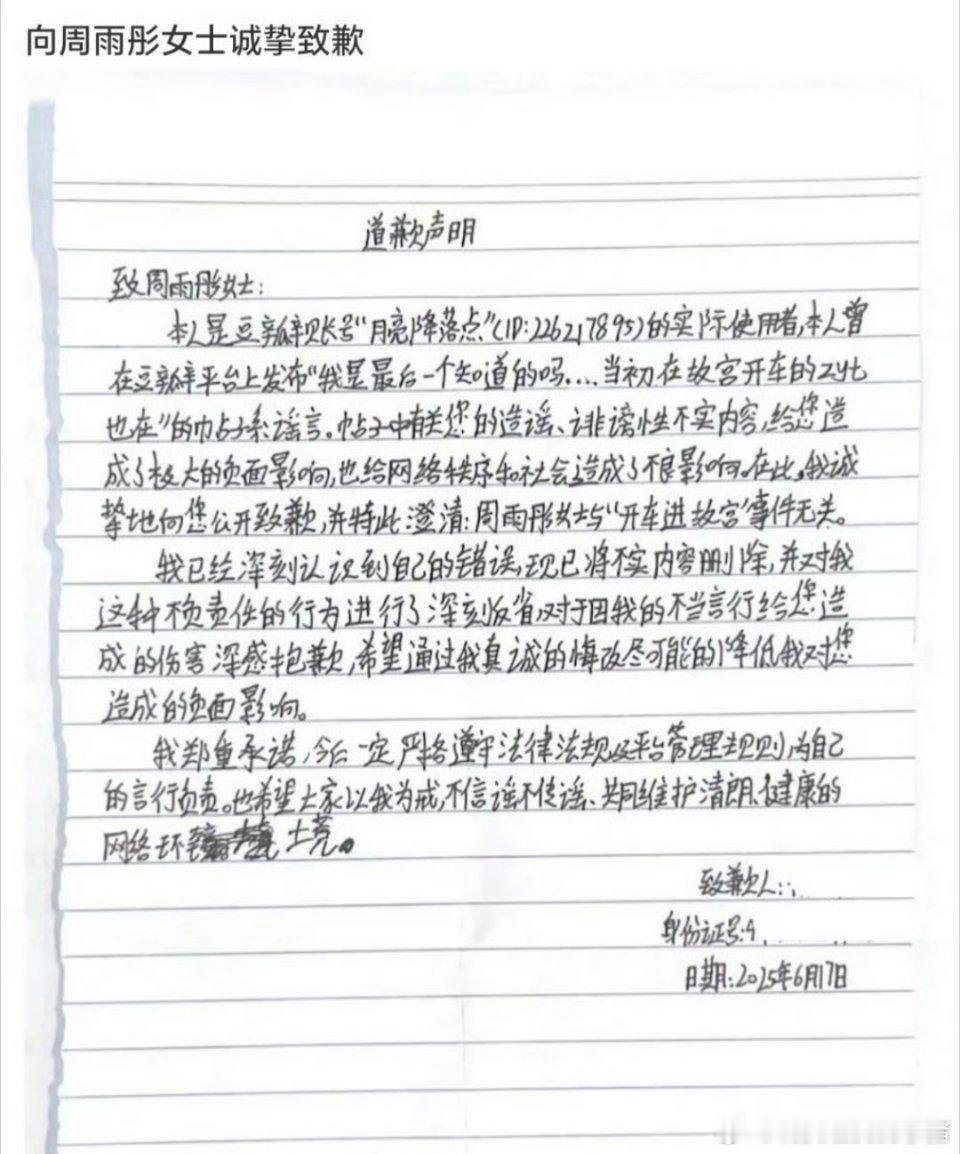 向周雨彤女士诚挚致歉
道歉声明
致周雨彤女士:
本人是豆瓣账号“月亮降落点”(ID:226217895)的实际使用者,本人曾
在豆瓣平台上发布“我是最后一个知道的吗....当初在故宫开车的zyt
也在”的帖子系谣言。帖子中有关您的造谣、诽谤性不实内容,给您造
成了极大的负面影响,也给网络秩序和社会造成了不良影响。在此,我诚
挚地向您公开致歉,并特此澄清:周雨彤女士与“开车进故宫”事件无关。
我已经深刻认识到自己的错误,现已将不实内容删除,并对我
这种不负责任的行为进行了深刻反省,对于因我的不当言行给您造
成的伤害深感抱歉,希望通过我真诚的悔改尽可能的降低我对您
造成的负面影响。
我郑重承诺,今后一定严格遵守法律法规及平台管理规则,为自己
的言行负责。也希望大家以我为戒,不信谣不传谣、共同维护清朗、健康的
网络环境。
致歉人:
身份证号:4
日期:2025年6月17日